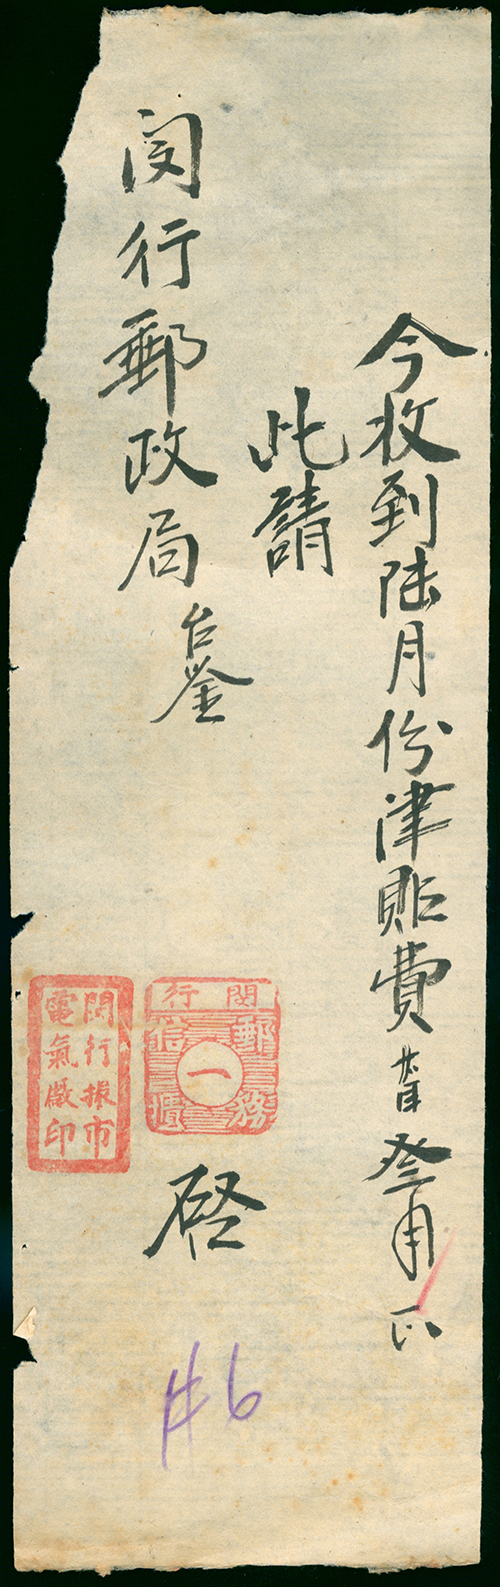 今收到陆月份津貼費 叁角正
此請
閔行郵政局台鑒
閔行
郵務
信櫃
一
閔行振市
電氣厰印
啓
#6